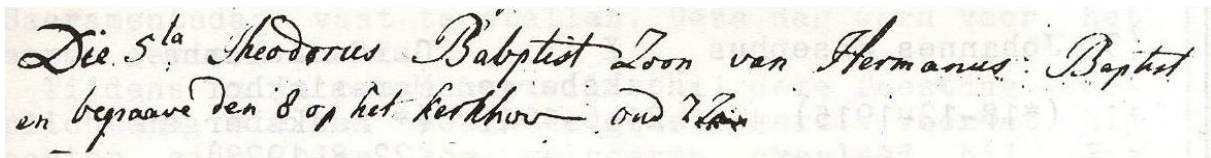 Die 5ta Theodorus Babptist Zoon van Hermanus Baptist
en begraave den 8 op het kerkhov oud 2